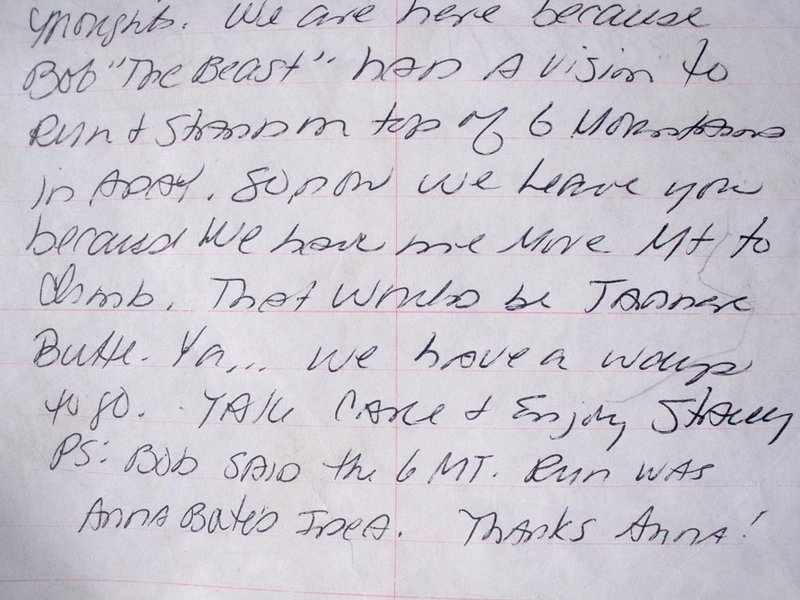 thoughts. We are here because
Bob "The Beast" had a vision to
Run & Stand on top of 6 Mountains
in a day. So now we leave you
because We have one More Mt to
Climb. That would be Tanner
Butte. Ya... we have a ways
to go. Take Care & Enjoy Stacey
PS: Bob said the 6 MT. Run was
Anna Bates Idea. Thanks Anna!